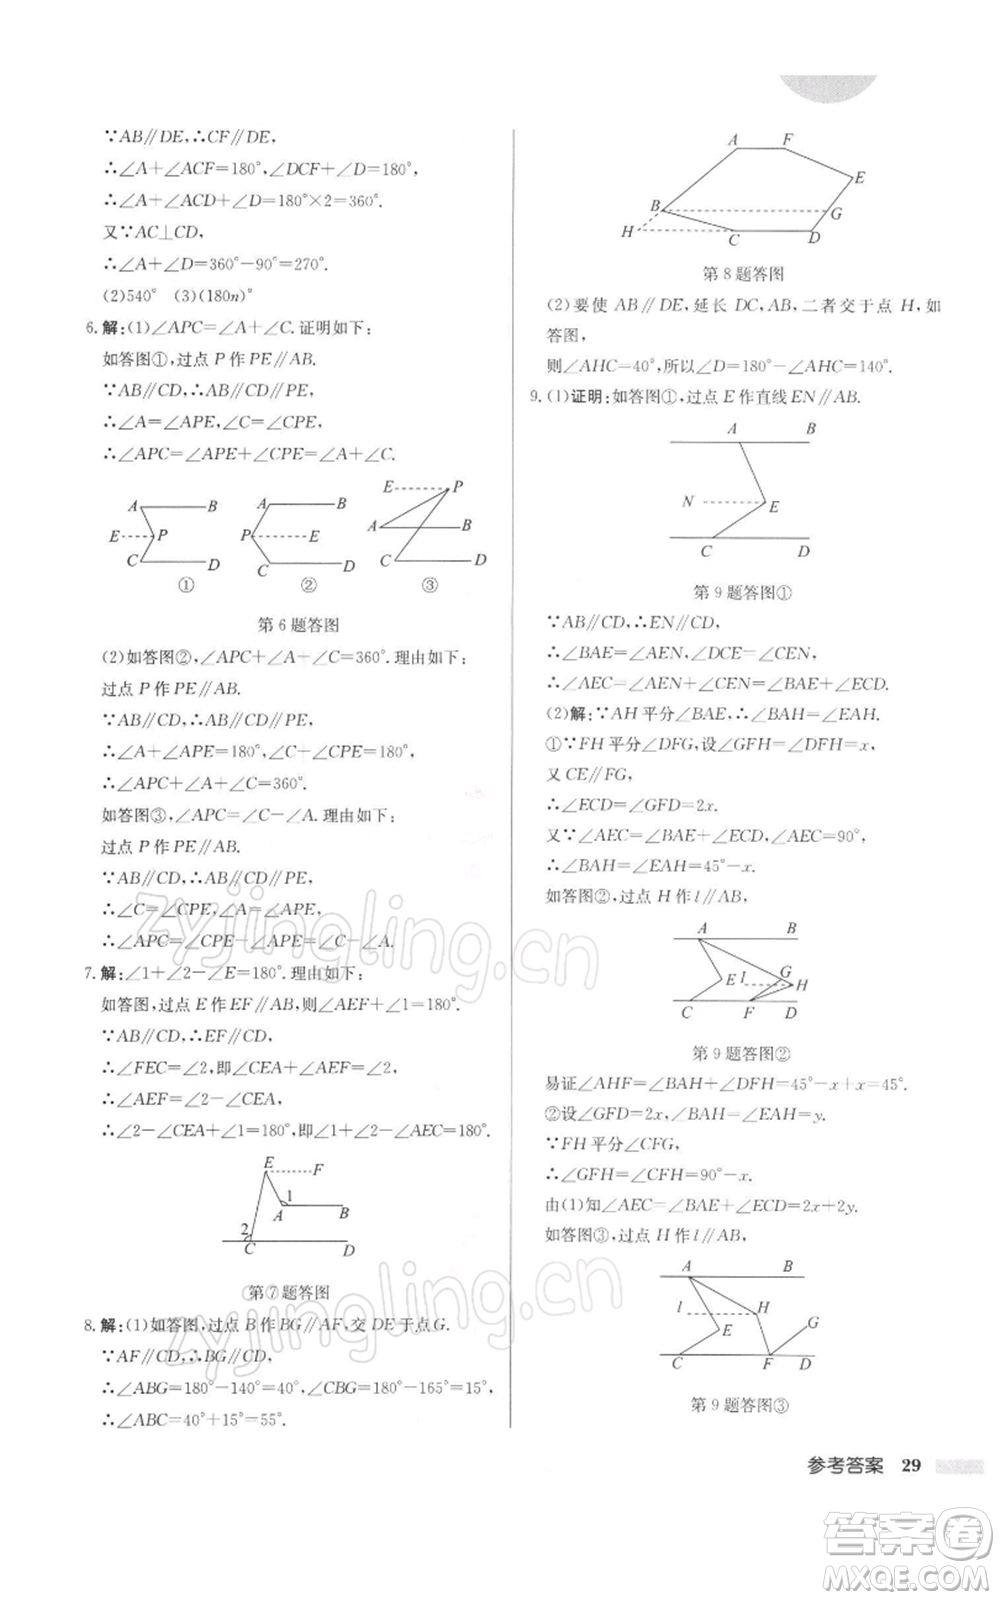 ∵AB∥DE,∴CF∥DE,
∴∠A+∠ACF=180°,∠DCF+∠D=180°,
∴∠A+∠ACD+∠D=180°×2=360°.
又∵AC⊥CD,
∴∠A+∠D=360°-90°=270°.
(2)540° (3)(180n)°
6.解:(1)∠APC=∠A+∠C.证明如下:
如答图①,过点P作PE∥AB.
∵AB∥CD,∴AB∥CD∥PE,
∴∠A=∠APE,∠C=∠CPE,
∴∠APC=∠APE+∠CPE=∠A+∠C.
A B E P C D ①
A B P E C D ②
E P A B C D ③
第6题答图
(2)如答图②,∠APC+∠A+∠C=360°.理由如下:
过点P作PE∥AB.
∵AB∥CD,∴AB∥CD∥PE,
∴∠A+∠APE=180°,∠C+∠CPE=180°,
∴∠APC+∠A+∠C=360°.
如答图③,∠APC=∠C-∠A.理由如下:
过点P作PE∥AB.
∵AB∥CD,∴AB∥CD∥PE,
∴∠C=∠CPE,∠A=∠APE,
∴∠APC=∠CPE-∠APE=∠C-∠A.
7.解:∠1+∠2-∠E=180°.理由如下:
如答图,过点E作EF∥AB,则∠AEF+∠1=180°.
∵AB∥CD,∴EF∥CD,
∴∠FEC=∠2,即∠CEA+∠AEF=∠2,
∴∠AEF=∠2-∠CEA,
∴∠2-∠CEA+∠1=180°,即∠1+∠2-∠AEC=180°.
E F 1 A B 2 C D
第7题答图
8.解:(1)如答图,过点B作BG∥AF,交DE于点G.
∵AF∥CD,∴BG∥CD,
∴∠ABG=180°-140°=40°,∠CBG=180°-165°=15°,
∴∠ABC=40°+15°=55°.
A F E B G H C D
第8题答图
(2)要使AB∥DE,延长DC,AB,二者交于点H,如
答图,
则∠AHC=40°,所以∠D=180°-∠AHC=140°.
9.(1)证明:如答图①,过点E作直线EN∥AB.
A B N E C D
第9题答图①
∵AB∥CD,∴EN∥CD,
∴∠BAE=∠AEN,∠DCE=∠CEN,
∴∠AEC=∠AEN+∠CEN=∠BAE+∠ECD.
(2)解:∵AH平分∠BAE,∴∠BAH=∠EAH.
①∵FH平分∠DFG,设∠GFH=∠DFH=x,
又CE∥FG,
∴∠ECD=∠GFD=2x.
又∵∠AEC=∠BAE+∠ECD,∠AEC=90°,
∴∠BAH=∠EAH=45°-x.
如答图②,过点H作l∥AB,
A B E l G H C F D
第9题答图②
易证∠AHF=∠BAH+∠DFH=45°-x+x=45°.
②设∠GFD=2x,∠BAH=∠EAH=y.
∵FH平分∠CFG,
∴∠GFH=∠CFH=90°-x.
由(1)知∠AEC=∠BAE+∠ECD=2x+2y.
如答图③,过点H作l∥AB,
A B l H E G C F D
第9题答图③
参考答案 29
zyjingling.cn
zyjingling.cn
答案卷
MXQE.COM